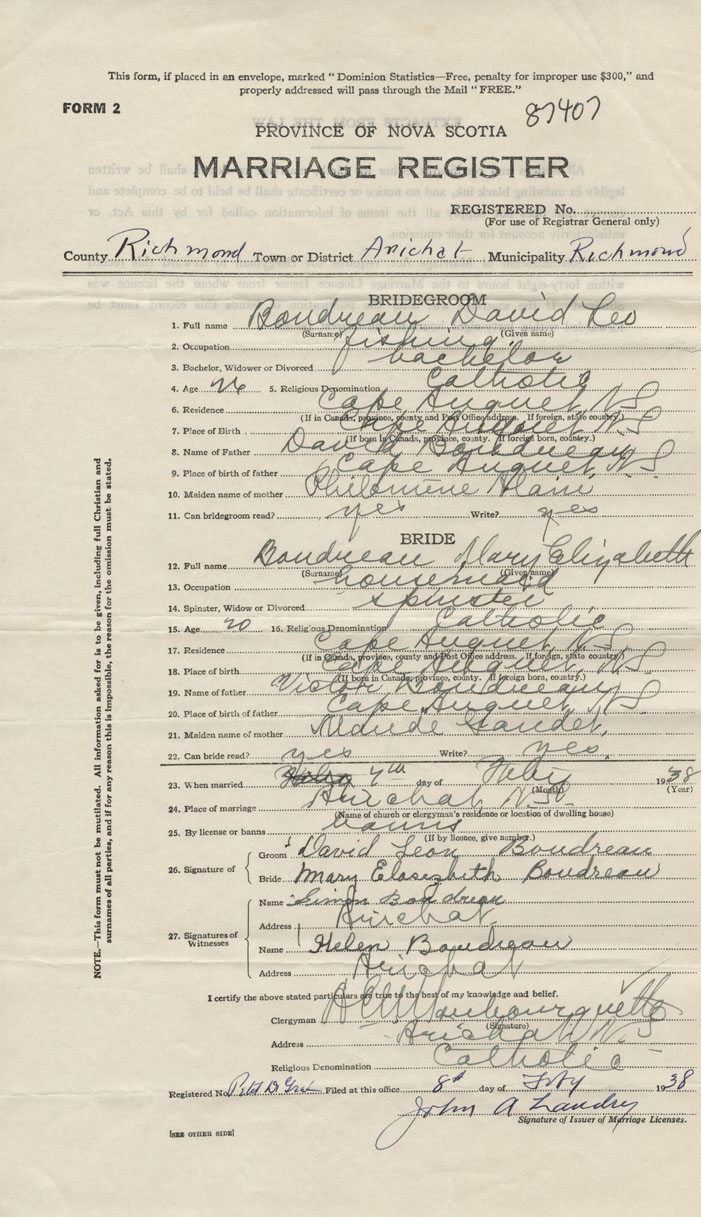 This form, if placed in an envelope, marked "Dominion Statistics—Free, penalty for improper use $300," and
properly addressed will pass through the Mail "FREE."
FORM 2
87407
PROVINCE OF NOVA SCOTIA
MARRIAGE REGISTER
REGISTERED No.
(For use of Registrar General only)
County Richmond Town or District Arichat Municipality Richmond
BRIDEGROOM
1. Full name Boudreau David Leo
(Surname) (Given name)
2. Occupation fishing
3. Bachelor, Widower or Divorced bachelor
4. Age 26 5. Religious Denomination Catholic
6. Residence Cape Auguet N.S
(If in Canada, province, county and Post Office address. If foreign, state country.)
7. Place of Birth Cape Auguet N.S
(If born in Canada, province, county. If foreign born, country.)
8. Name of Father David Boudreau
9. Place of birth of father Cape Auguet, N.S
10. Maiden name of mother Philomène
11. Can bridegroom read? yes Write? yes
BRIDE
12. Full name Boudreau Mary Elizabeth
(Surname) (Given name)
13. Occupation housemaid
14. Spinster, Widow or Divorced spinster
15. Age 20 16. Religious Denomination Catholic
17. Residence Cape Auguet, N.S
(If in Canada, province, county and Post Office address. If foreign, state country)
18. Place of birth Cape Auguet, N.S.
(If born in Canada, province, county. If foreign born, country.)
19. Name of father Victor Boudreau
20. Place of birth of father Cape Auguet, N.S
21. Maiden name of mother Maude Gaudet
22. Can bride read? yes Write? yes
23. When married 7th day of Feby 1938
(Month) (Year)
24. Place of marriage Arichat, N.S.
(Name of church or clergyman's residence or location of dwelling house)
25. By license or banns banns
(If by licence, give number.)
26. Signature of
Groom David Leon Boudreau
Bride Mary Elosezbith Boudreau
27. Signatures of Witnesses
Name Simon Boudreau
Address Arichat
Name Helen Boudreau
Address Arichat
I certify the above stated particulars are true to the best of my knowledge and belief.
Clergyman
(Signature)
Address Arichat N.S
Religious Denomination Catholic
Registered No. Filed at this office 8th day of Feby 1938
John A Landry
Signature of Issuer of Marriage Licenses.
[SEE OTHER SIDE]
NOTE.—This form must not be mutilated. All information asked for is to be given, including full Christian and
surnames of all parties, and if for any reason this is impossible, the reason for the omission must be stated.